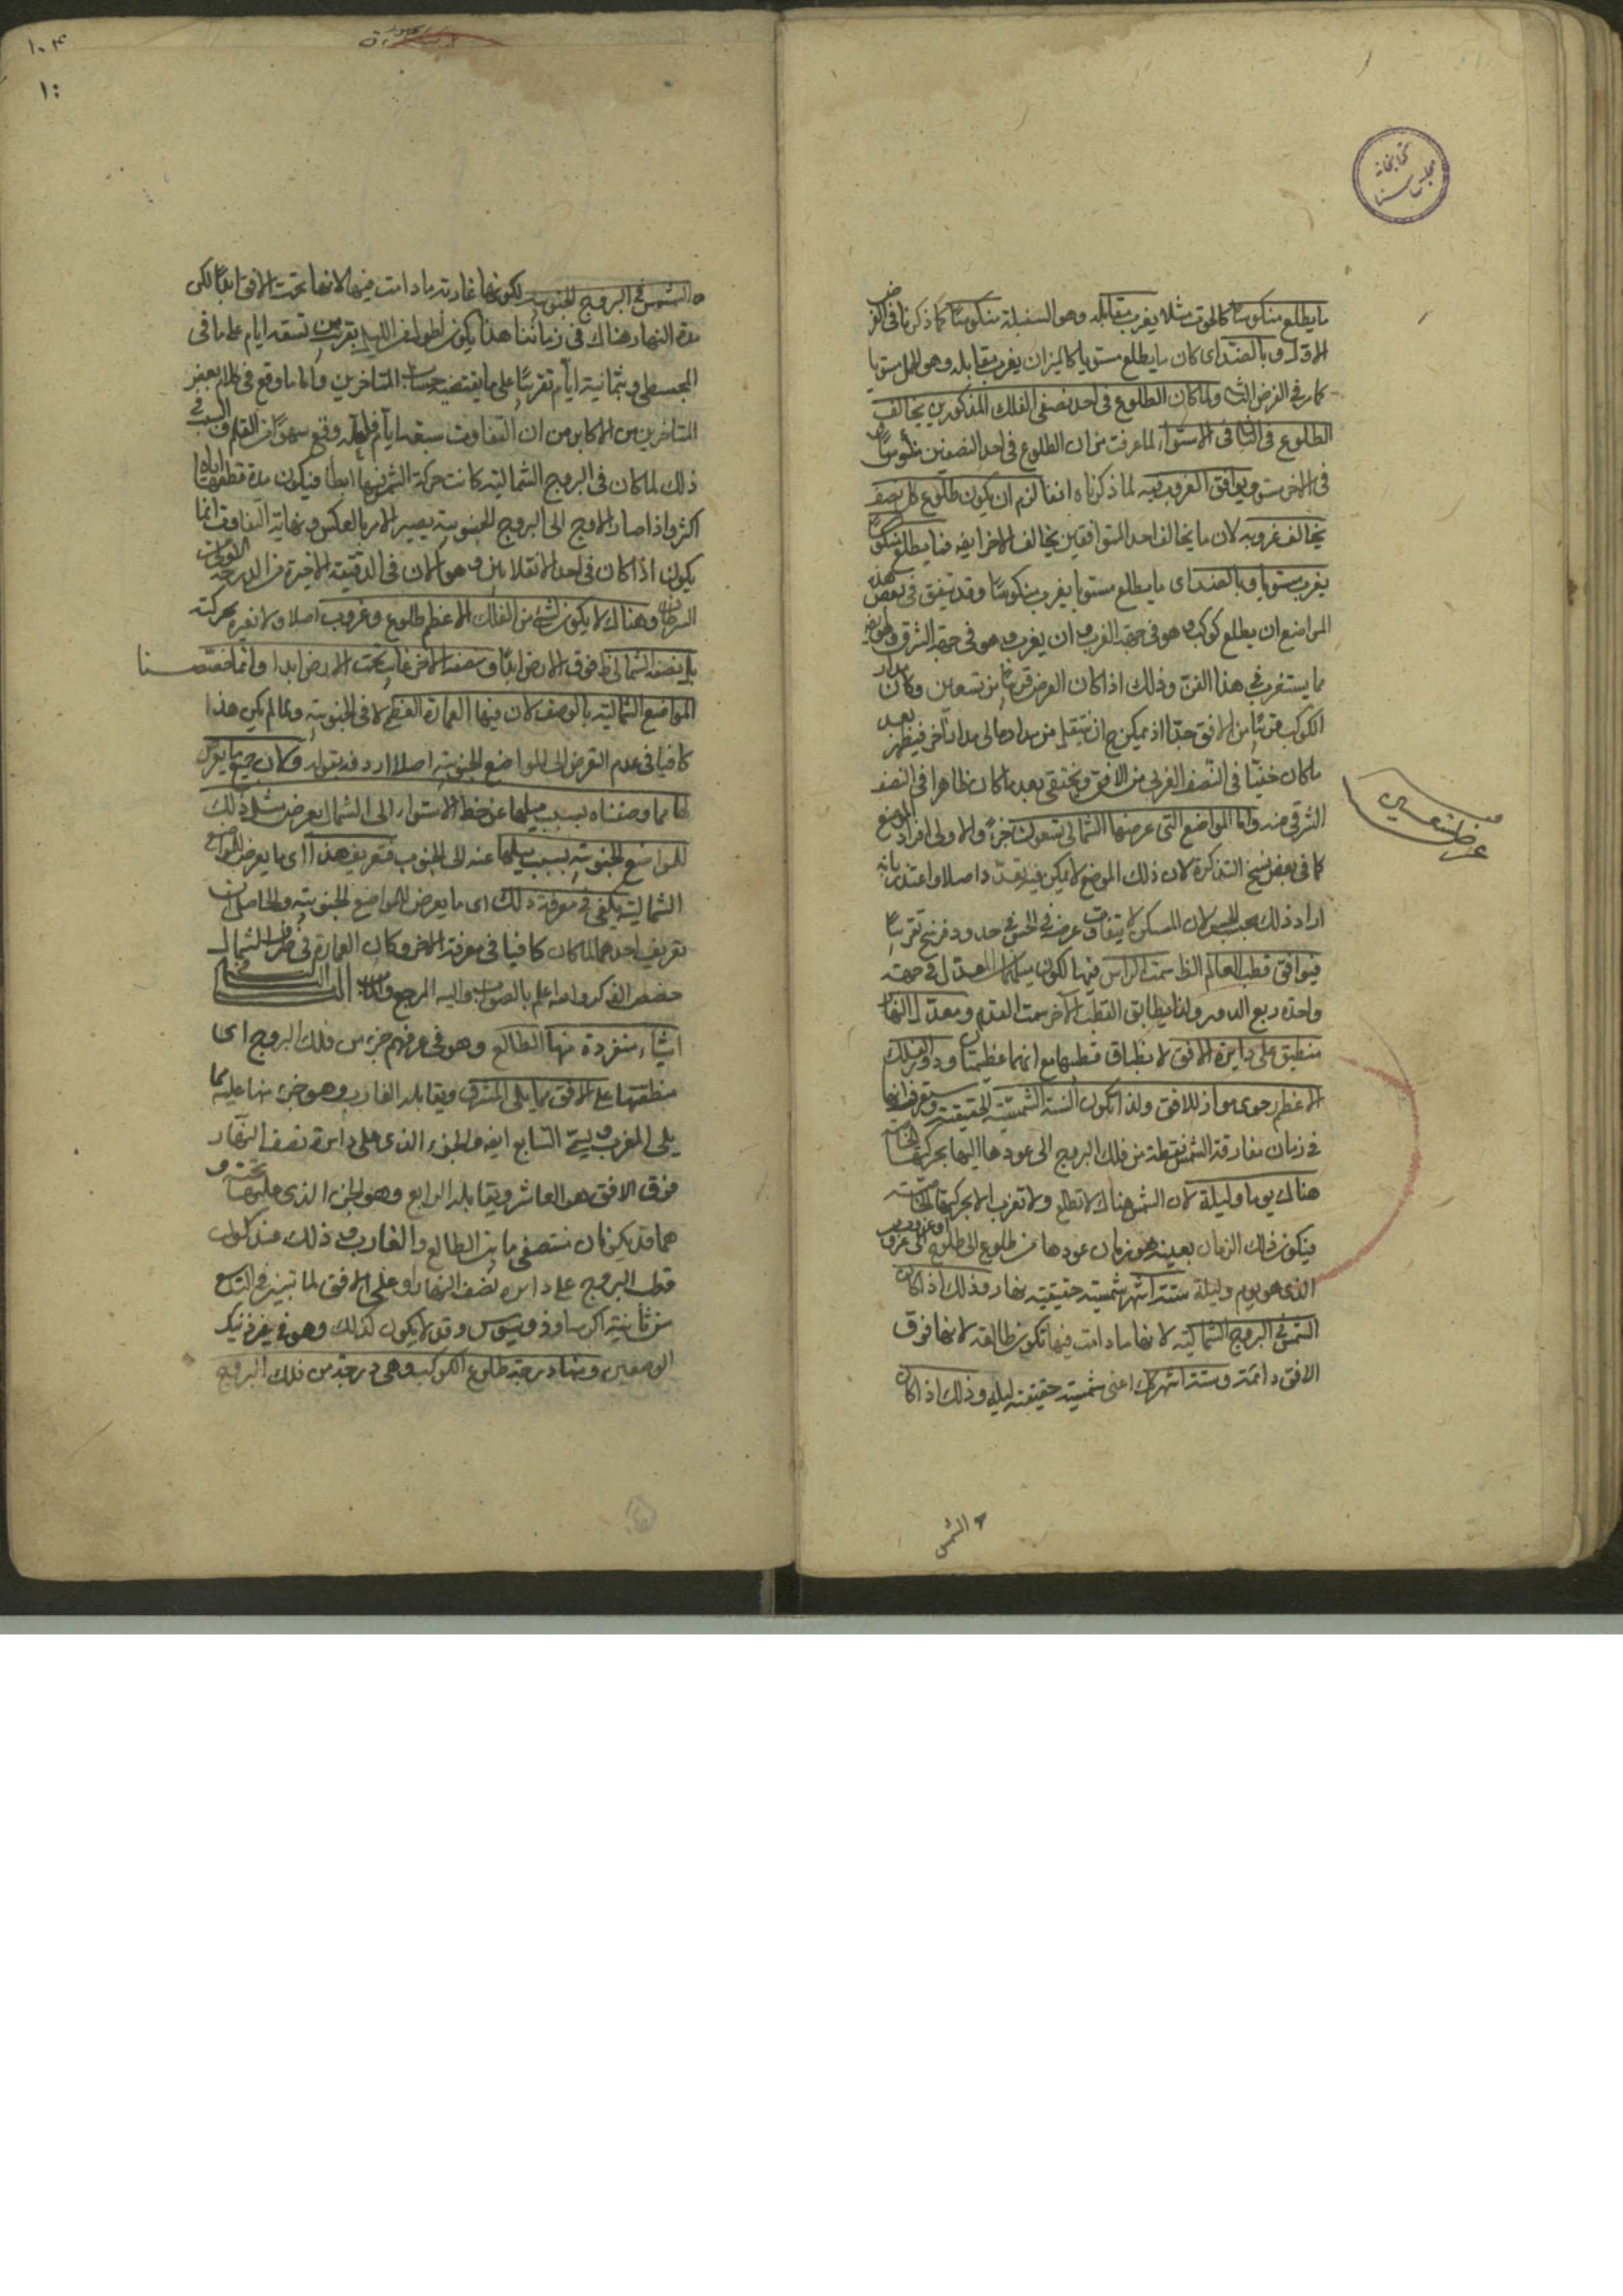 كتابخانه
مجلس سنا
ما يطلع منكوسا كالحوت مثلا يغرب مقابله وهو السنبلة منكوسا كما ذكرنا فى الفرض
الاول وبالضد اى كان ما يطلع مستويا كالميزان يغرب مقابله وهو الحمل مستويا
كما مر فى الفرض الثانى ولما كان الطلوع فى احد نصفى الفلك المذكورين يخالف
الطلوع فى الثانى فى الاستواء لما عرفت من ان الطلوع فى احد النصفين منكوسا و
فى الاخر مستو ويوافق الغروب فيه لما ذكرناه انفا لزم ان يكون طلوع كل نصف
يخالف غروبه لان ما يخالف احد المتوافقين يخالف الاخر ايضا فما يطلع منكوسا
يغرب مستويا وبالضد اى ما يطلع مستويا يغرب منكوسا وقد يتفق فى بعض هذه
المواضع ان يطلع كوكب وهو فى جهة الغرب و ان يغرب وهو فى جهة الشرق وهو ايضا
مما يستغرب فى هذا الفن وذلك اذا كان العرض قريبا من تسعين وكان مدار
الكوكب قريبا من الافق جدا اذ يمكن ح ان ينتقل من مدار الى مدار آخر فيظهر بعد
ما كان خفيا فى النصف الغربى من الافق ويختفى بعد ما كان ظاهرا فى النصف
الشرقى منه واما المواضع التى عرضها الشمالى تسعون جزء والاولى افراد الموضع
كما فى بعض نسخ التذكرة لان ذلك الموضع لا يمكن فيه تعدد اصلا واعتذر بانه
اراد ذلك بحسب الحس لان المسكن لا يتفاوت عرضه فى الحس فى حدود فرسخ تقريبا
فيوافق قطب العالم الظاهر سمت الرأس فيها لكون ميلهما عن المعدل فى جهة
واحدة ربع الدور ولذا يطابق القطب الآخر سمت القدم و معدل النهار
منطبق على دايرة الافق لانطباق قطبيهما مع انهما عظيمتان ودور الفلك
الاعظم رحوى مواز للافق ولذا تكون السنة الشمسية الحقيقية وستعرف انها
فى زمان مفارقة الشمس نقطة من فلك البروج الى عودها اليها بحركتها الخاصة
هناك يوما وليلة لان الشمس هناك لا تطلع ولا تغرب الا بحركتها الخاصة
فيكون ذلك الزمان بعينه هو زمان عودها من طلوع الى طلوع او غروب الى غروب
الذى هو يوم وليلة ستة اشهر شمسية حقيقية نهار وذلك اذا كان
الشمس فى البروج الشمالية لانها ما دامت فيها تكون طالعة لانها فوق
الافق دائمة وستة اشهر كك اعنى شمسية حقيقية ليله وذلك اذا كان
الشمس
عرض تسعين
١٠٤
الشمس فى البروج الجنوبية لكونها غاربة ما دامت فيها لانها تحت الافق ابدا لكن
مدة النهار هناك فى زماننا هذا يكون اطول من الليل بقريب من تسعة ايام على ما فى
المجسطى وبثمانية ايام تقريبا على ما يقتضيه حساب المتاخرين واما ما وقع فى كلام بعض
المتاخرين من الاكابر من ان التفاوت سبعة ايام فلعله وقع سهوا من القلم والسبب فى
ذلك لما كان فى البروج الشمالية كانت حركة الشمس فيها ابطأ فيكون مدة قطعها اياه
اكثر واذا صار الاوج الى البروج الجنوبية يصير الامر بالعكس و نهاية التفاوت انما
يكون اذا كان فى احد الانقلابين و هو الان فى الدقيقة الاخيرة من الدرجة
السرطان وهناك لا يكون لشئ من الفلك الاعظم طلوع وغروب اصلا ولا لغيره بحركته
بل نصفه الشمالى ظاهر فوق الارض ابدا و نصفه الآخر غايب تحت الارض ابدا وانما خصصنا
المواضع الشمالية بالوصف لان فيها العمارة العظمى لا فى الجنوبية ولما لم يكن هذا
كافيا فى عدم التعرض الى المواضع الجنوبية اصلا اردفه بقوله وكان جميع ما يعرض
لها مما وصفناه بسبب ميلها عن خط الاستواء الى الشمال يعرض مثل ذلك
للمواضع الجنوبية بسبب ميلها عنه الى الجنوب فتعريف هذا اى ما يعرض للمواضع
الشمالية يكفى فى معرفة ذلك اى ما يعرض للمواضع الجنوبية والحاصل ان
تعريف احدهما لما كان كافيا فى معرفة الاخر وكان العمارة فى طرف الشمال
خصص الذكر والله اعلم بالصواب واليه المرجع والمآب
اشياء منفردة منها الطالع وهو فى عرفهم جزء من فلك البروج اى
منطقتها على الافق مما يلى المشرق ويقابله الغارب وهو جزء منها عليه مما
يلى المغرب ويسمى السابع ايضا والجزء الذى على دايرة نصف النهار
فوق الافق هو العاشر ويقابله الرابع وهو الجزء الذى عليها تحته و
هما قد يكونان منتصفى ما بين الطالع والغارب و ذلك عند كون
قطب البروج على دايرة نصف النهار او على الافق لما تبين فى التاسع
من ثانية اكر ثاوذوسيوس وقد لا يكون كذلك وهو فى غير ذينك
الوضعين ومنها درجة طلوع الكوكب وهى درجة من فلك البروج